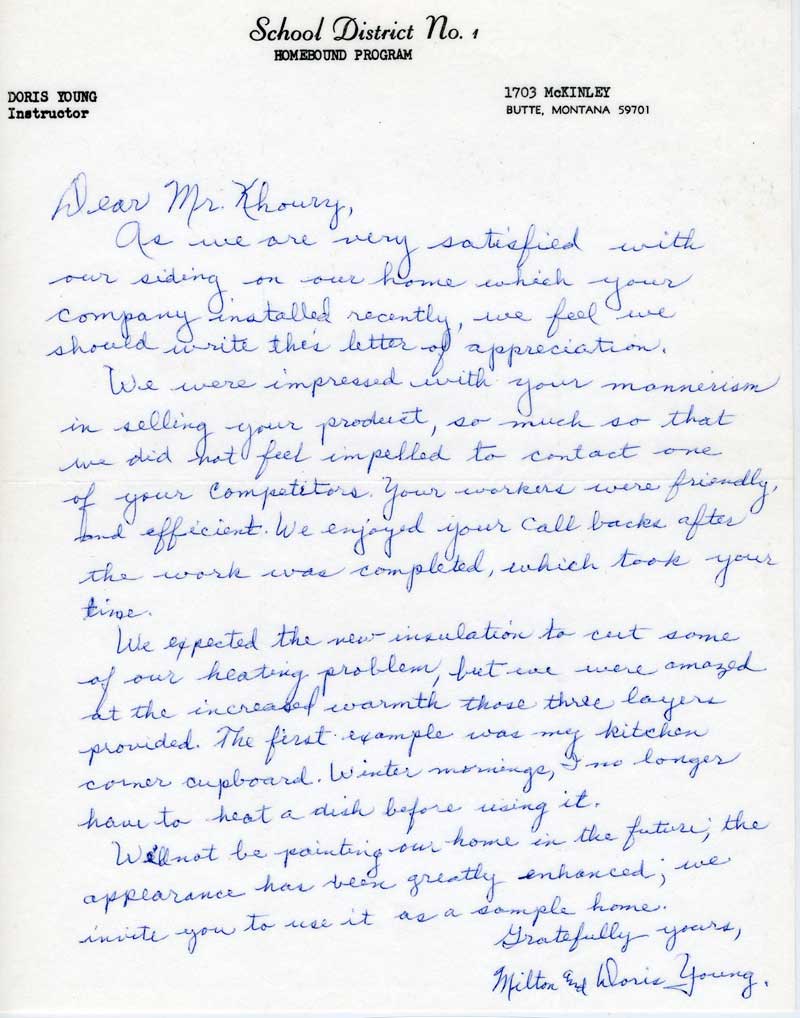 School District No. 1
HOMEBOUND PROGRAM
DORIS YOUNG
Instructor
1703 McKINLEY
BUTTE, MONTANA 59701
Dear Mr. Khoury,
As we are very satisfied with
our siding on our home which your
company installed recently, we feel we
should write this letter of appreciation.
We were impressed with your mannerism
in selling your product, so much so that
we did not feel impelled to contact one
of your competitors. Your workers were friendly,
and efficient. We enjoyed your call backs after
the work was completed, which took your
time.
We expected the new insulation to cut some
of our heating problem, but we were amazed
at the increased warmth those three layers
provided. The first example was my kitchen
corner cupboard. Winter mornings, I no longer
have to heat a dish before using it.
We'll not be painting our home in the future; the
appearance has been greatly enhanced; we
invite you to use it as a sample home.
Gratefully yours,
Milton and Doris Young.